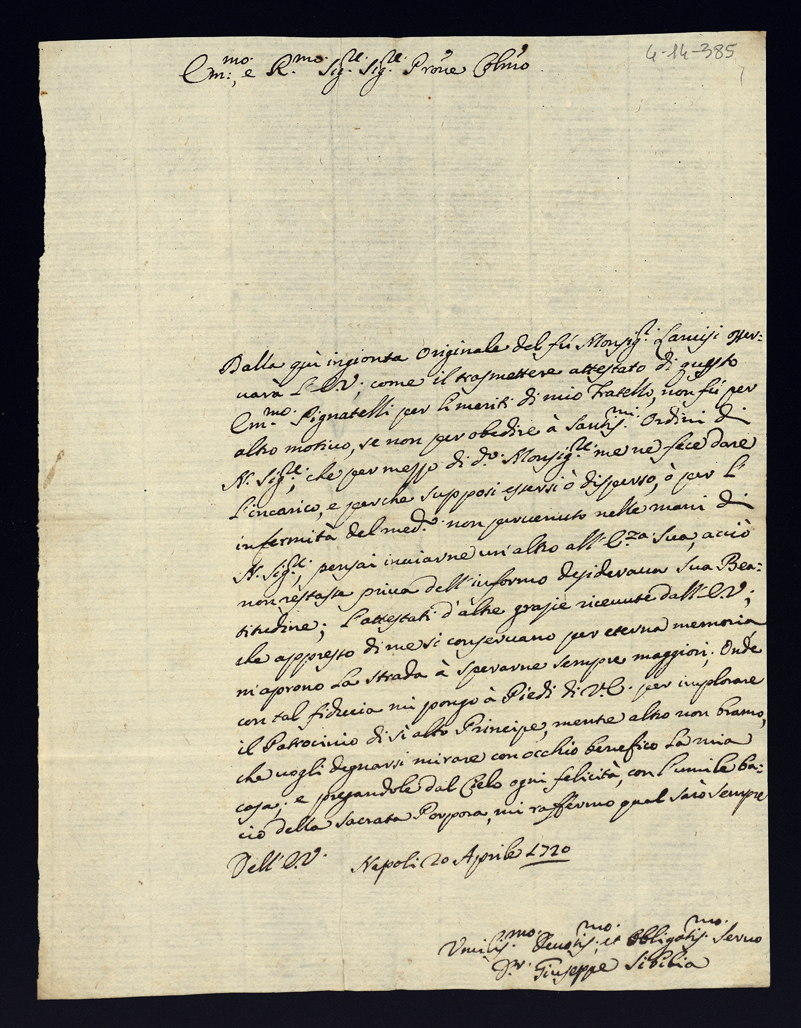 4-14-385
Em.mo, e R.mo Sig.re Sig.re Prone Colmo
Dalla quì ingionta Originale del fù Monsig.r Lancisi osser=
uarà L'E.V. come il trasmettere attestato di questo
Em.mo Pignatelli per li meriti di mio Fratello, non fù per
altro motiuo, se non per obedire à Santis.mi Ordini di
N. Sig.re, che per mezzo di d.o Monsig.re me ne fece dare
l'incarico, e perche supposi essersi ò disperso, ò per l'
infermità del med.o non peruenuto nelle mani di
N. Sig.re, pensai inuiarne un'altro all'E.za Sua, acciò
non restasse priua dell'informo desideraua Sua Bea=
titudine; L'attestati d'altre grazie riceuute dall'E.V.,
che appresso di me si conseruano per eterna memoria
m'aprono la strada à sperarne sempre maggiori; Onde
con tal fiducia mi pongo à Piedi di V.E. per implorare
il Patrocinio di sì alto Principe, mentre altro non bramo,
che uogli degnarsi mirare con occhio benefico la mia
casa; e pregandole dal Cielo ogni felicità, con l'umile ba=
cio della Sacrata Porpora, mi raffermo qual sarò sempre
Dell'E.V. Napoli 20 Aprile 1720
Vmilis.mo Deuotis.mo et Obligatis.mo Seruo
D.r Giuseppe Sibilia